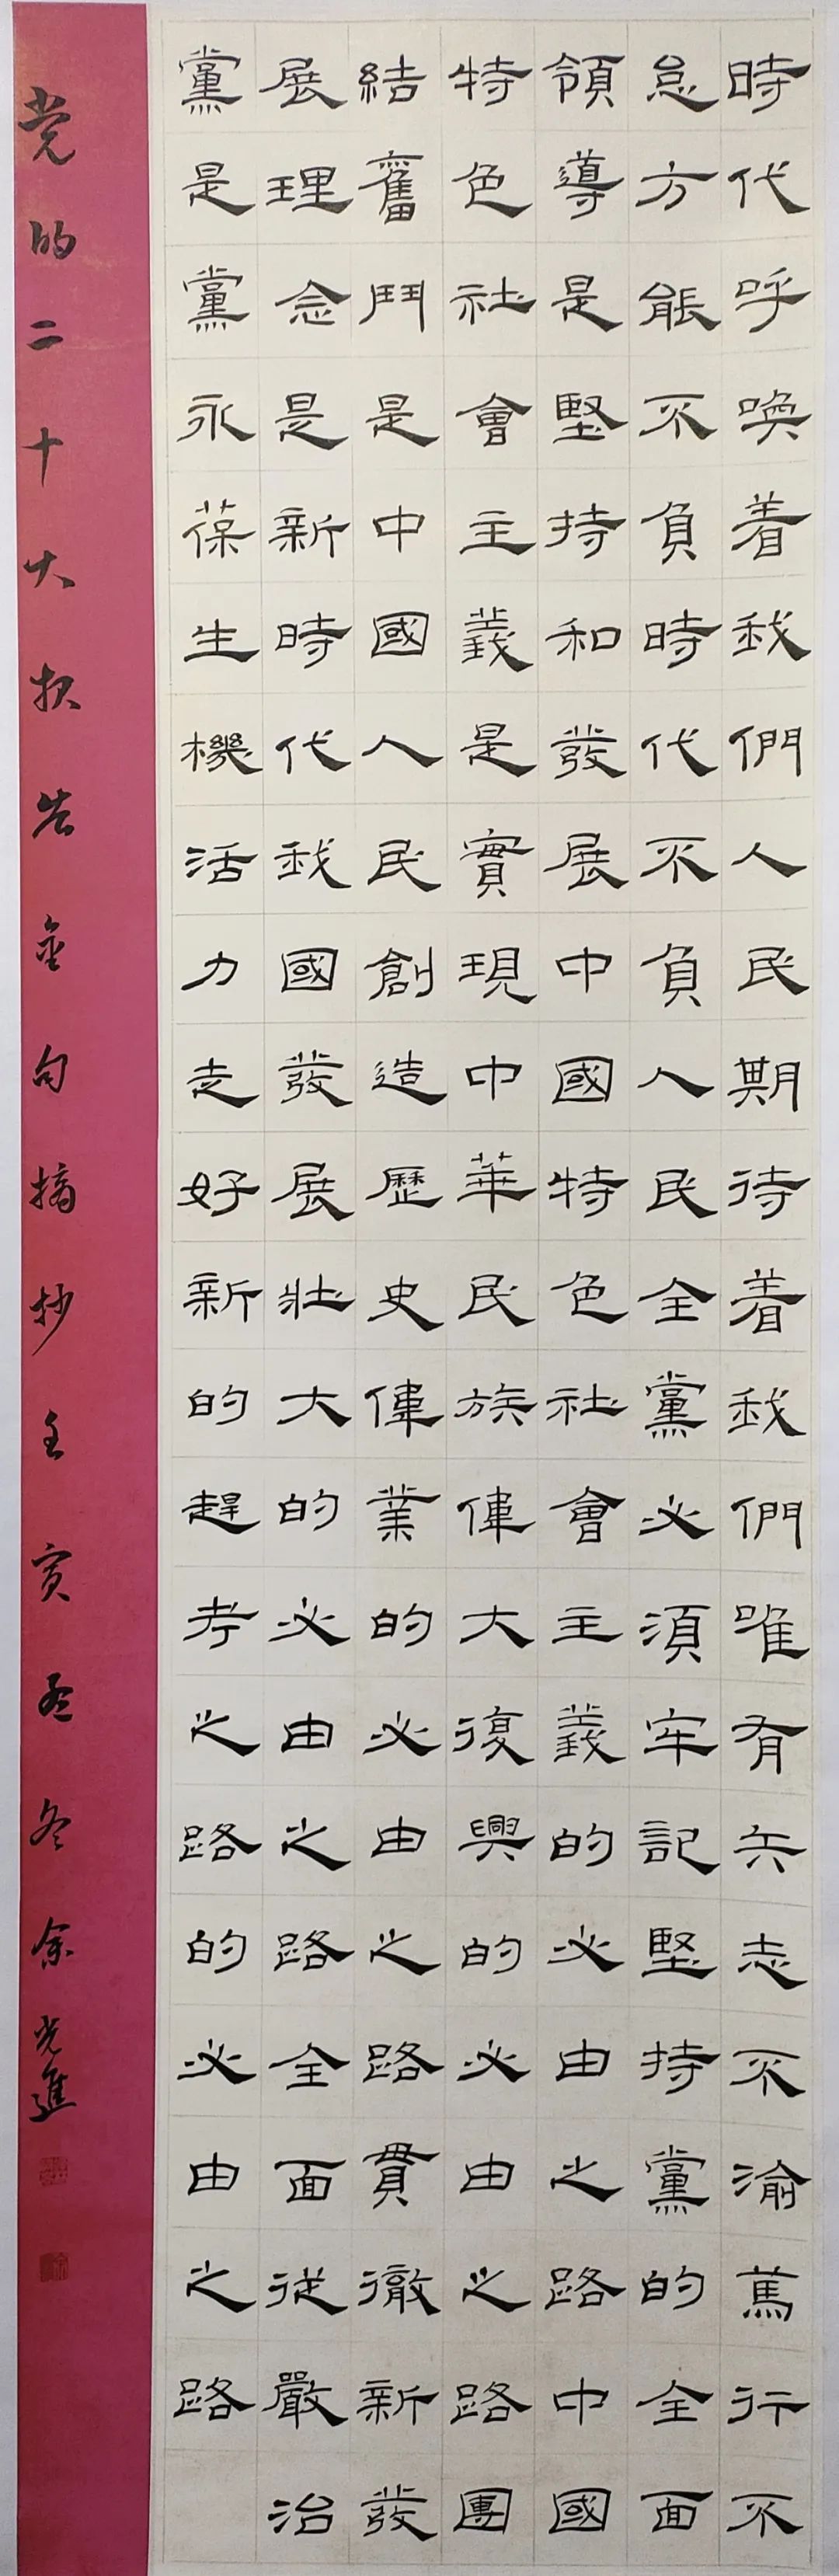 時代呼喚着我們人民期待着我們唯有矢志不渝篤行不
怠方能不負時代不負人民全黨必須牢記堅持黨的全面
領導是堅持和發展中國特色社會主義的必由之路中國
特色社會主義是實現中華民族偉大復興的必由之路團
結奮鬥是中國人民創造歷史偉業的必由之路貫徹新發
展理念是新時代我國發展壯大的必由之路全面從嚴治
黨是黨永葆生機活力走好新的趕考之路的必由之路
党的二十大报告金句摘抄壬寅孟冬余光進